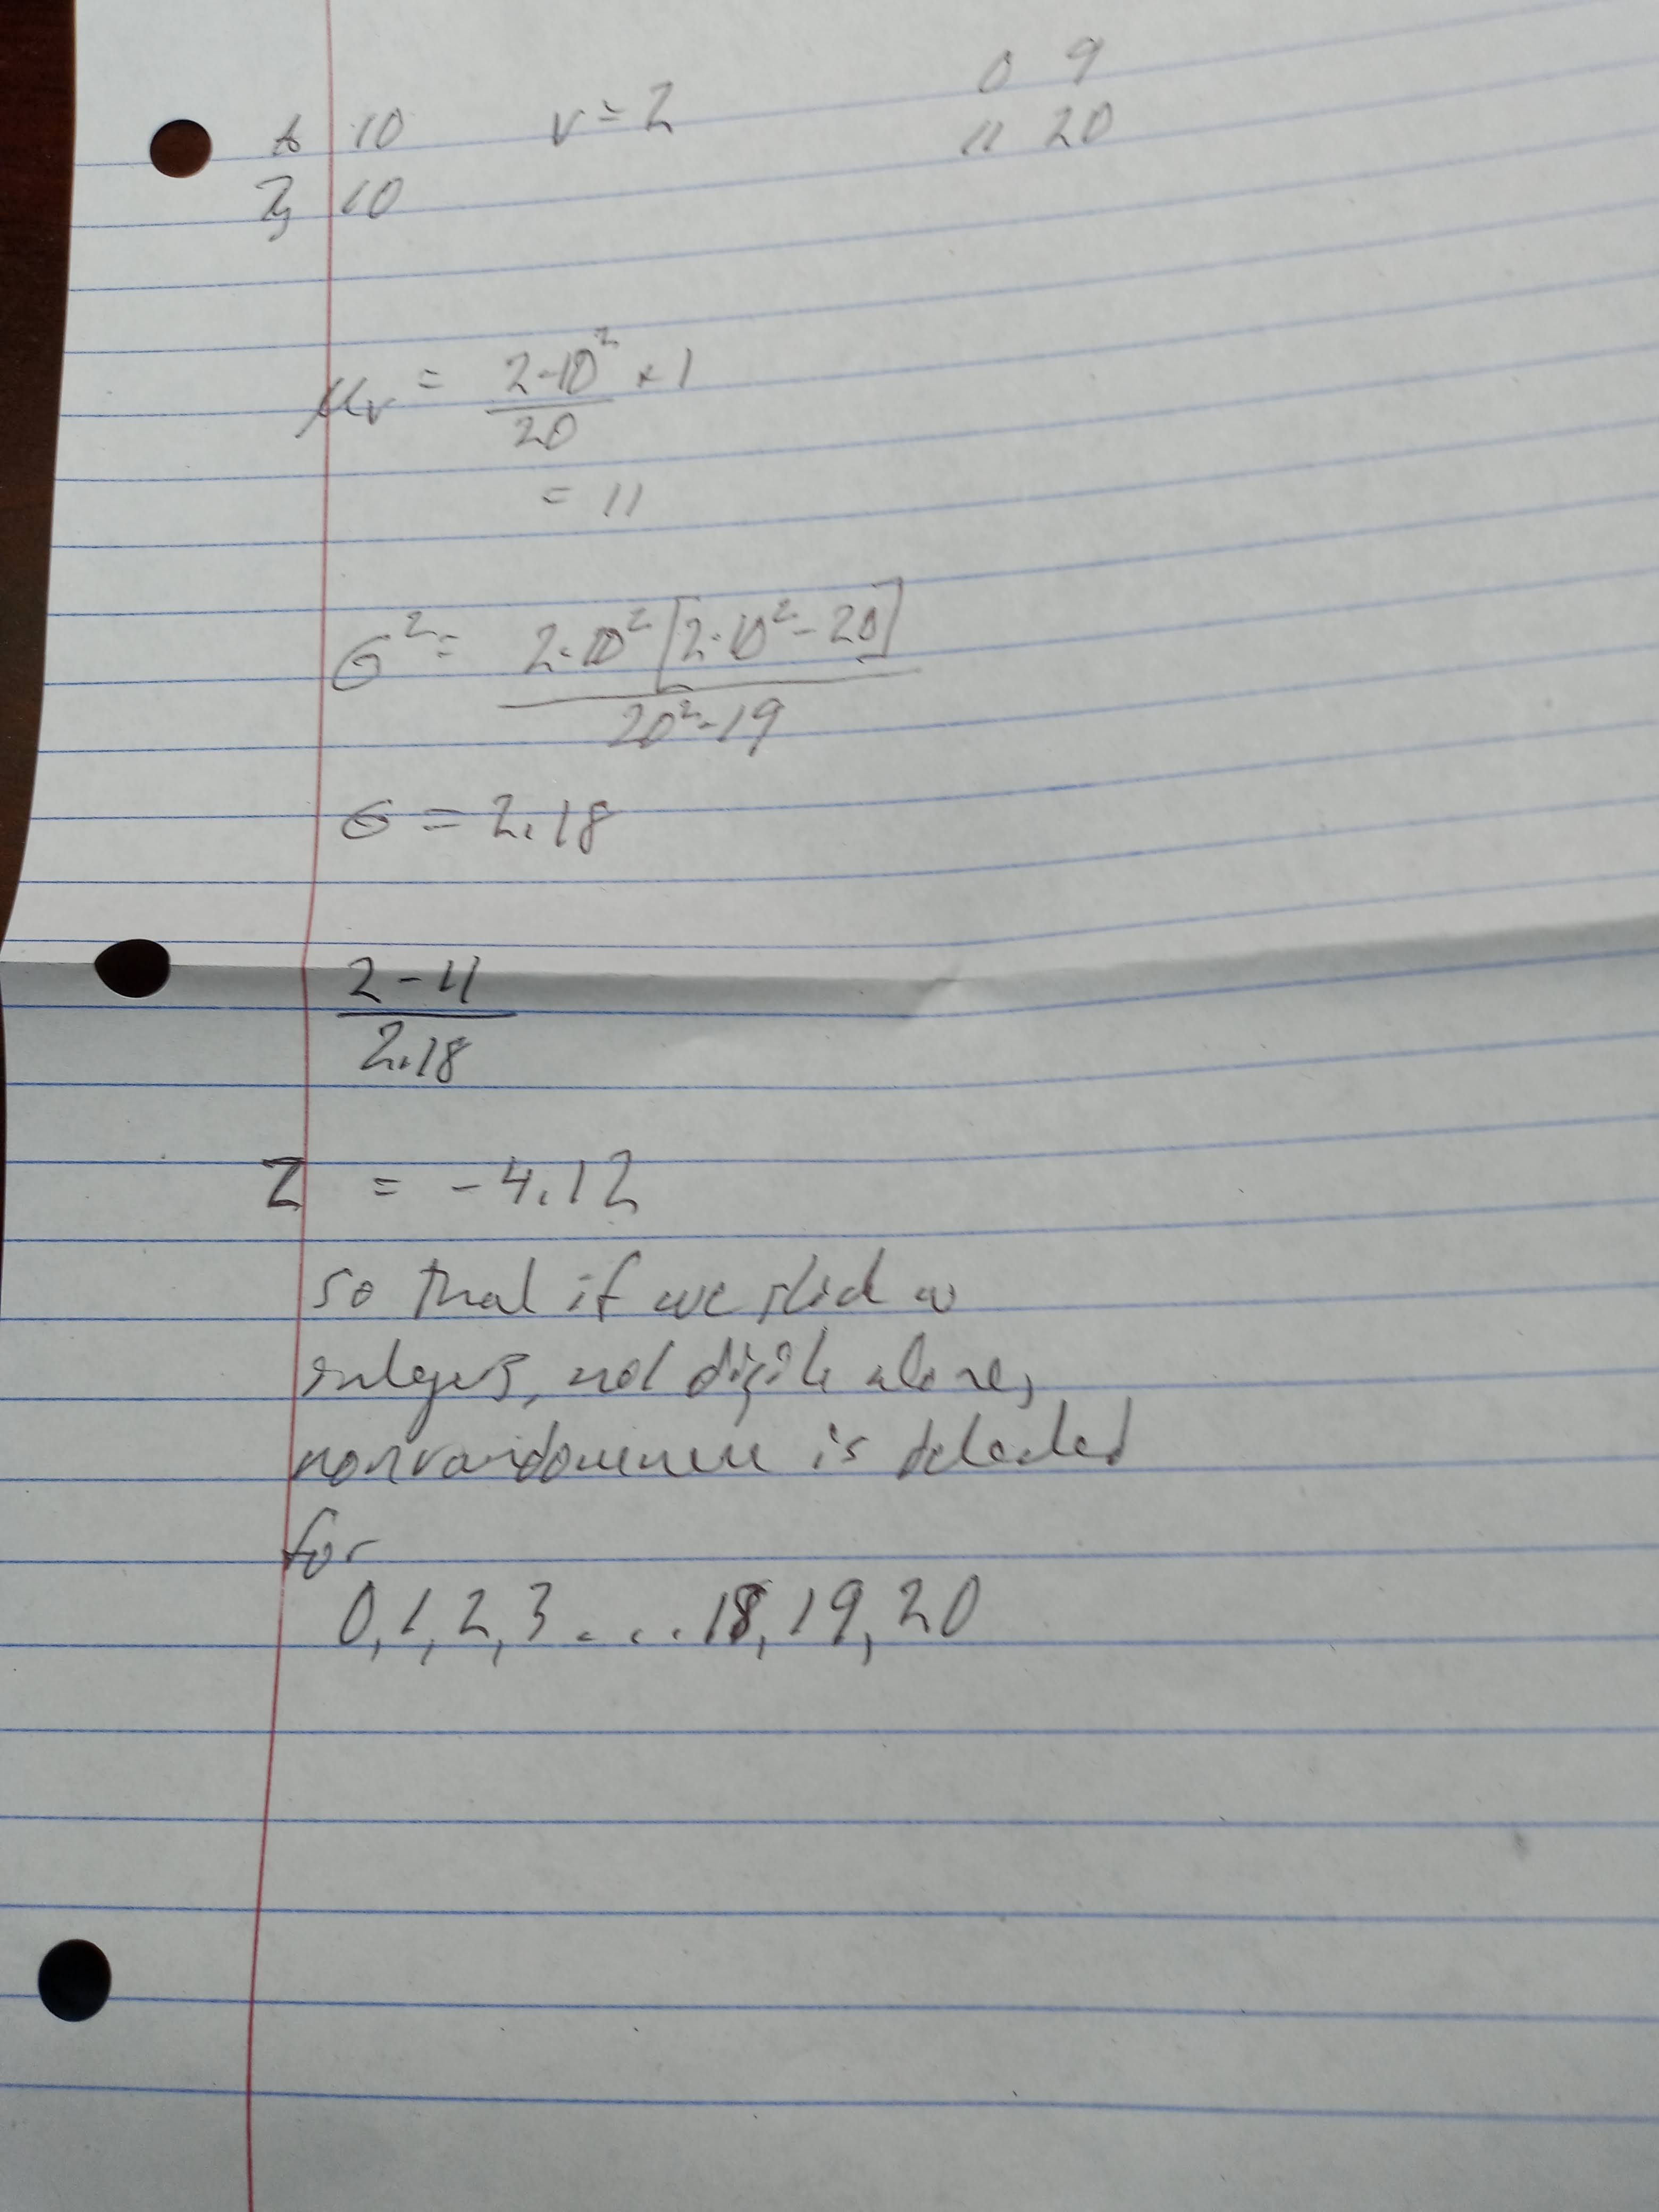 0 9
A 10 v = 2 11 20
B 10
μᵥ = 2·10² + 1
20
= 11
σ² = 2·10² [2·10² - 20]
20²·19
σ = 2.18
2 - 11
2.18
Z = -4.12
so that if we stick w
integers, not digits alone,
nonrandomness is detected
for
0, 1, 2, 3 . . . . 18, 19, 20